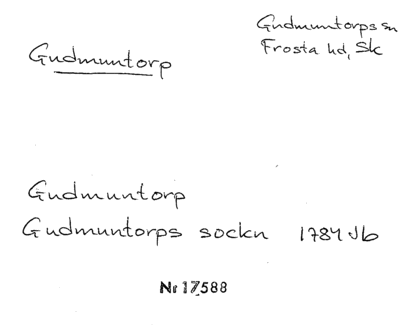 Gudmuntorps sn
Frosta hd, Sk
Gudmuntorp
Gudmuntorp
Gudmuntorps sockn 1784 Jb
Nr 17588